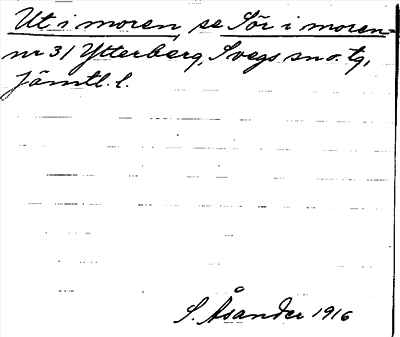 Ut i moren, se Sör i moren =
nr 31 Ytterberg, Svegs sn o. tg,
Jämtl. l.
S. Åsander 1916